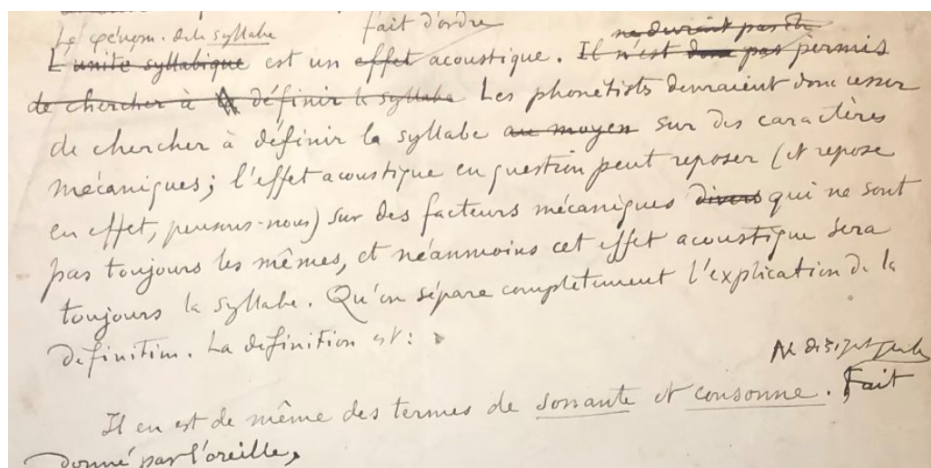 Le phénom. de la syllabe fait d'ordre
L'unité syllabique est un effet acoustique. Il n'est donc pas permis ne devraient pas
de chercher à définir la syllabe Les phonétists devraient donc cesser
de chercher à définir la syllabe au moyen sur des caractères
mécaniques; l'effet acoustique en question peut reposer (et repose
en effet, pensons-nous) sur des facteurs mécaniques divers qui ne sont
pas toujours les mêmes, et néanmoins cet effet acoustique sera
toujours la syllabe. Qu'on sépare complètement l'explication de la
definition. La definition est:
Il en est de même des termes de sonante et consonne. Fait
donné par l'oreille,